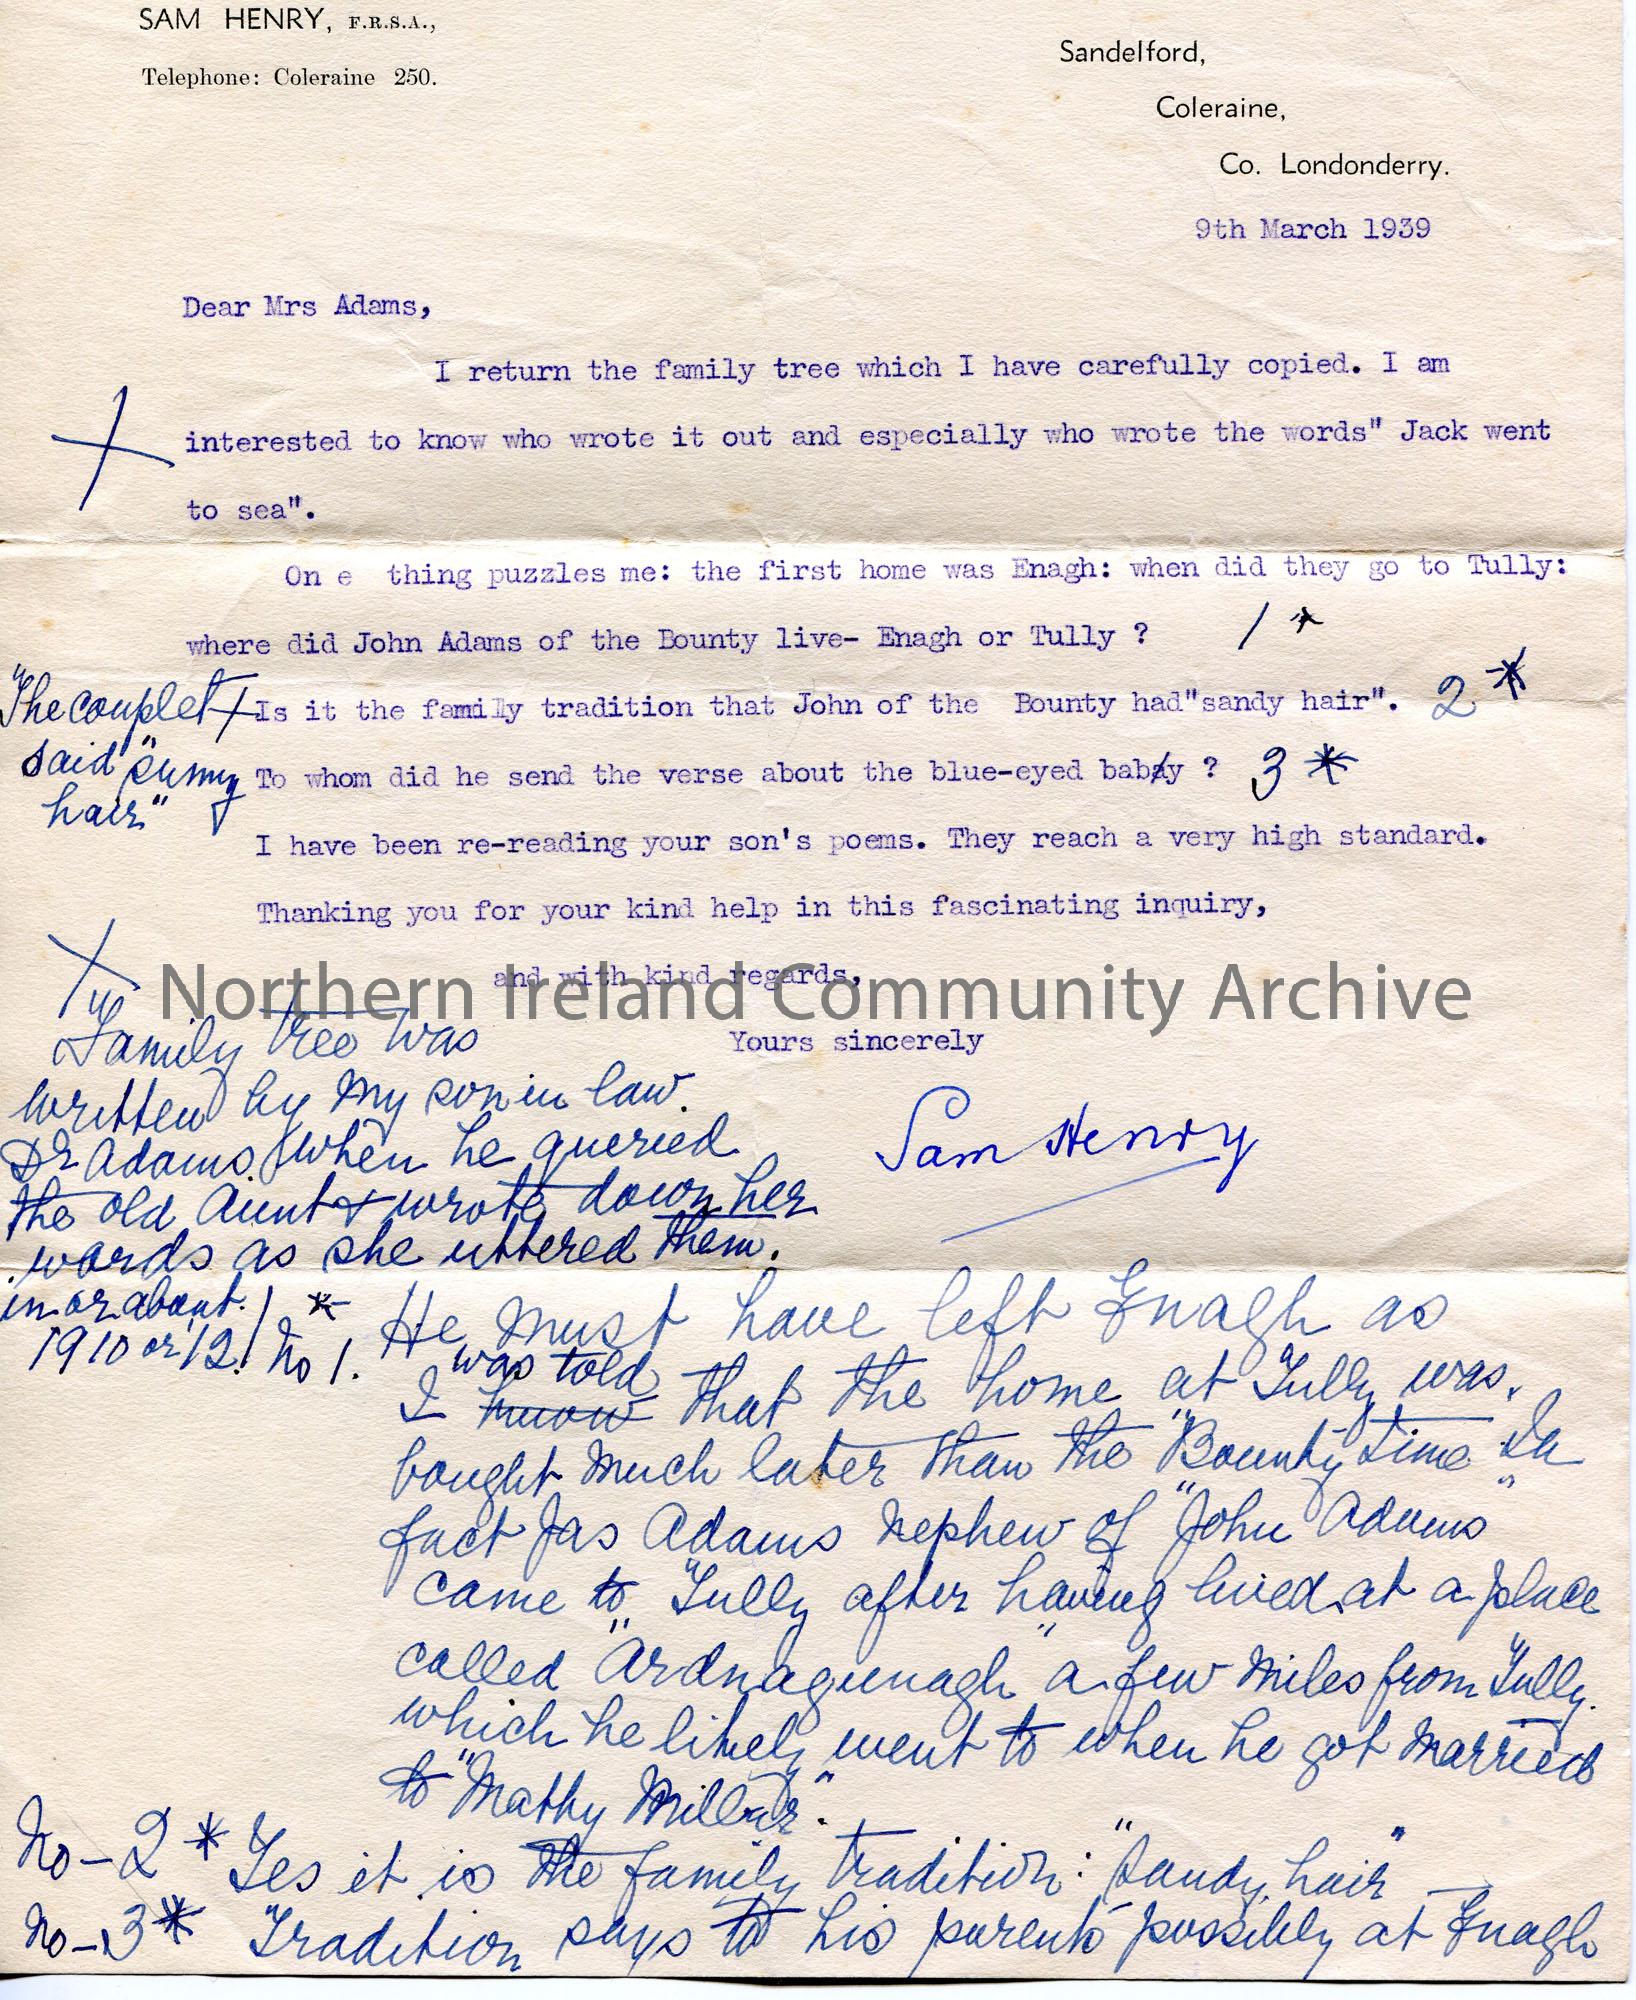 SAM HENRY, F.R.S.A.,
Telephone: Coleraine 250.
Sandelford,
Coleraine,
Co. Londonderry.
9th March 1939
Dear Mrs Adams,
I return the family tree which I have carefully copied. I am
interested to know who wrote it out and especially who wrote the words" Jack went
to sea".
On e thing puzzles me: the first home was Enagh: when did they go to Tully:
where did John Adams of the Bounty live- Enagh or Tully ? 1 *
Is it the family tradition that John of the Bounty had"sandy hair". 2 *
"The couplet
said "sunny
hair"
To whom did he send the verse about the blue-eyed baby ? 3 *
I have been re-reading your son's poems. They reach a very high standard.
Thanking you for your kind help in this fascinating inquiry,
and with kind regards,
Northern Ireland Community Archive
Yours sincerely
Sam Henry
Family tree was
written by my son in law.
Dr Adams when he queried
the old Aunt & wrote down her
words as she uttered them.
in or about
1910 or '12.
* No 1. He must have left Enagh as
I know was told that the home at Tully was
bought much later than the "Bounty" time In
fact Jas Adams nephew of "John Adams"
came to Tully after having lived at a place
called "Ardnagunagh" a few miles from Tully.
which he likely went to when he got married
to "Matty Millar."
No-2 * Yes it is the family tradition: "Sandy hair" —
No-3 * Tradition says to his parents possibly at Enagh